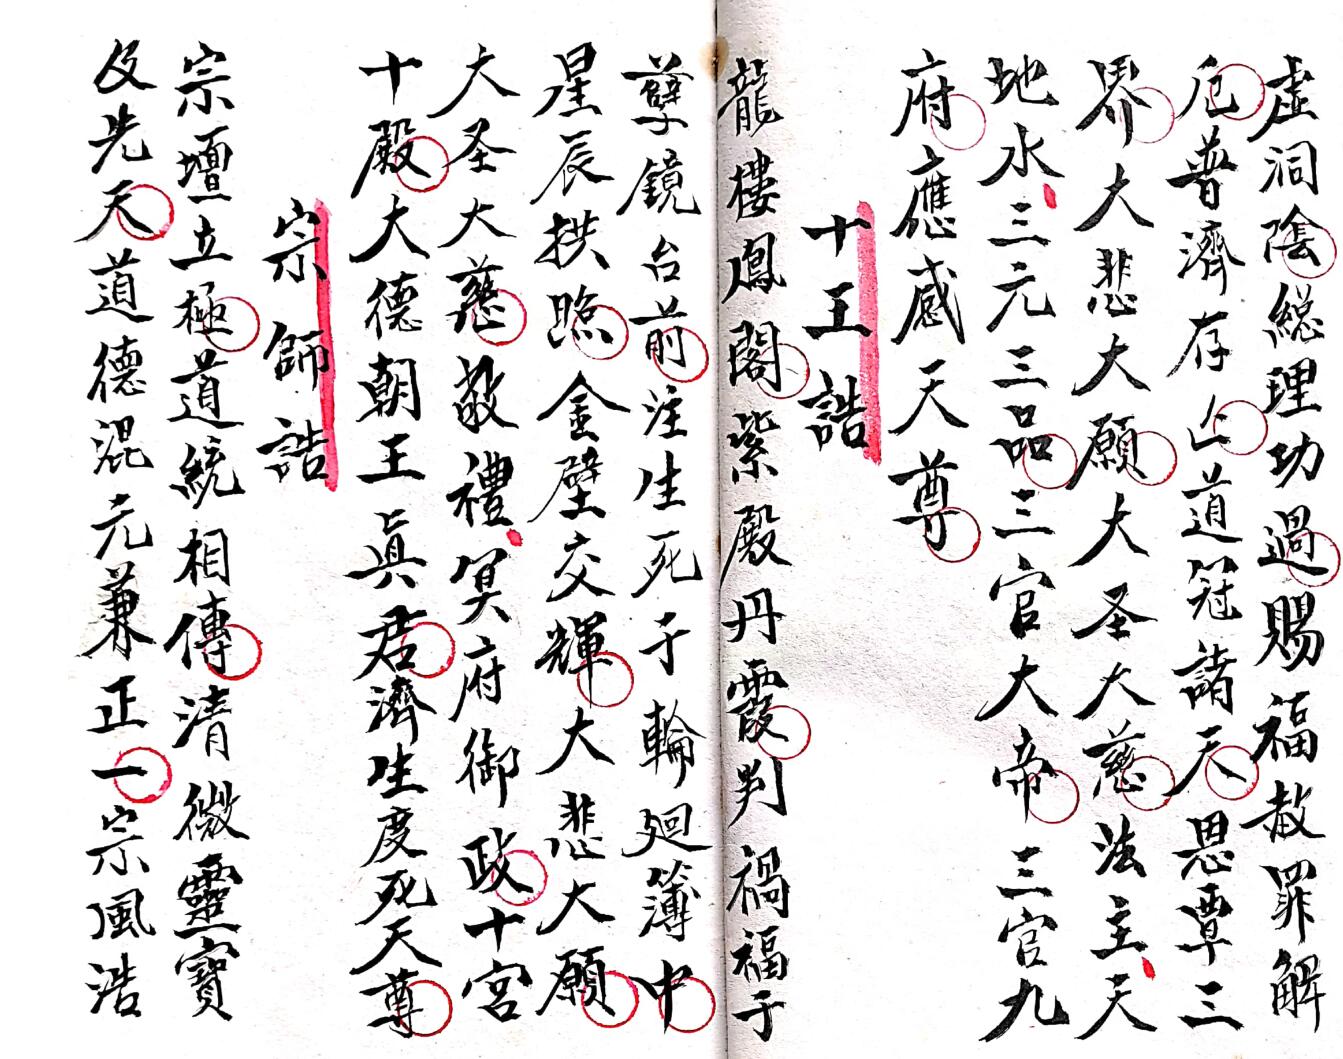 虛洞陰總理功過賜福赦罪解
厄普濟存亡道冠諸天恩覃三
界大悲大願大圣大慈法主天
地水三元三品三官大帝三官九
府應感天尊
十王誥
龍樓鳳閣紫殿丹霞判禍福于
孽鏡台前注生死于輪廻簿中
星辰拱照金壁交輝大悲大願
大圣大慈敬禮冥府御政十宮
十殿大德朝王眞君濟生度死天尊
宗師誥
宗壇立極道統相傳清微靈寶
及先天道德混元兼正一宗風浩